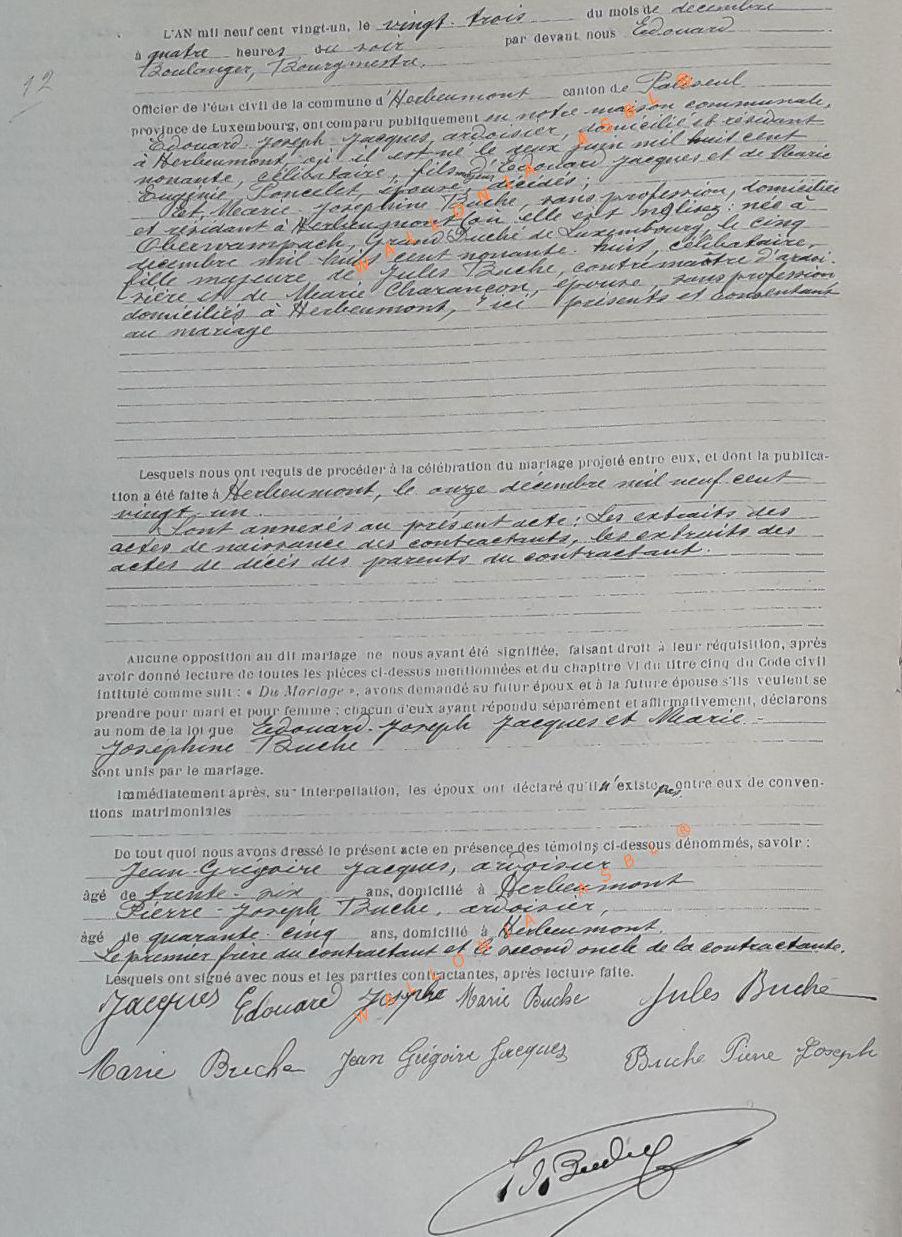 12
L'AN mil neuf cent vingt-un, le vingt-trois du mois de décembre
à quatre heures du soir par devant nous Edouard
Boulanger, Bourgmestre.
Officier de l'état civil de la commune d'Herbeumont canton de Paliseul
province de Luxembourg, ont comparu publiquement en notre maison communale,
Edouard Joseph Jacques, ardoisier, domicilié et résidant
à Herbeumont où il est né le deux juin mil huit cent
nonante, célibataire, fils majeur d'Edouard Jacques et de Marie
Eugénie Poncelet épouse, décédés;
Et Marie Joséphine Buche, sans profession, domiciliée
et résidant à Herbeumont où elle est née à
Oberwampach, Grand Duché de Luxembourg, le cinq
décembre mil huit cent nonante huit, célibataire,
fille majeure de Jules Buche, contremaître d'ardoi-
sière et de Marie Charançon, épouse, sans profession
domiciliés à Herbeumont, ici présents et consentant
au mariage
Lesquels nous ont requis de procéder à la célébration du mariage projeté entre eux, et dont la publica-
tion a été faite à Herbeumont, le onze décembre mil neuf cent
vingt un.
Sont annexés au présent acte: Les extraits des
actes de naissance des contractants, les extraits des
actes de décès des parents du contractant.
Aucune opposition au dit mariage ne nous ayant été signifiée, faisant droit à leur réquisition, après
avoir donné lecture de toutes les pièces ci-dessus mentionnées et du chapitre VI du titre cinq du Code civil
intitulé comme suit : « Du Mariage », avons demandé au futur époux et à la future épouse s'ils veulent se
prendre pour mari et pour femme ; chacun d'eux ayant répondu séparément et affirmativement, déclarons
au nom de la loi que Edouard-Joseph Jacques et Marie-
Joséphine Buche
sont unis par le mariage.
Immédiatement après, sur interpellation, les époux ont déclaré qu'il n'existe pas entre eux de conven-
tions matrimoniales
De tout quoi nous avons dressé le présent acte en présence des témoins ci-dessous dénommés, savoir :
Jean-Grégoire Jacques, ardoisier
âgé de trente-six ans, domicilié à Herbeumont
Pierre-Joseph Buche, ardoisier,
âgé de quarante-cinq ans, domicilié à Herbeumont.
Le premier frère du contractant et le second oncle de la contractante.
Lesquels ont signé avec nous et les parties contractantes, après lecture faite.
Jacques Edouard Josephe Marie Buche Jules Buche
Marie Buche Jean Grégoire Jacques Buche Pierre Joseph
WALLONIA ASBL ®
WALLONIA ASBL ®